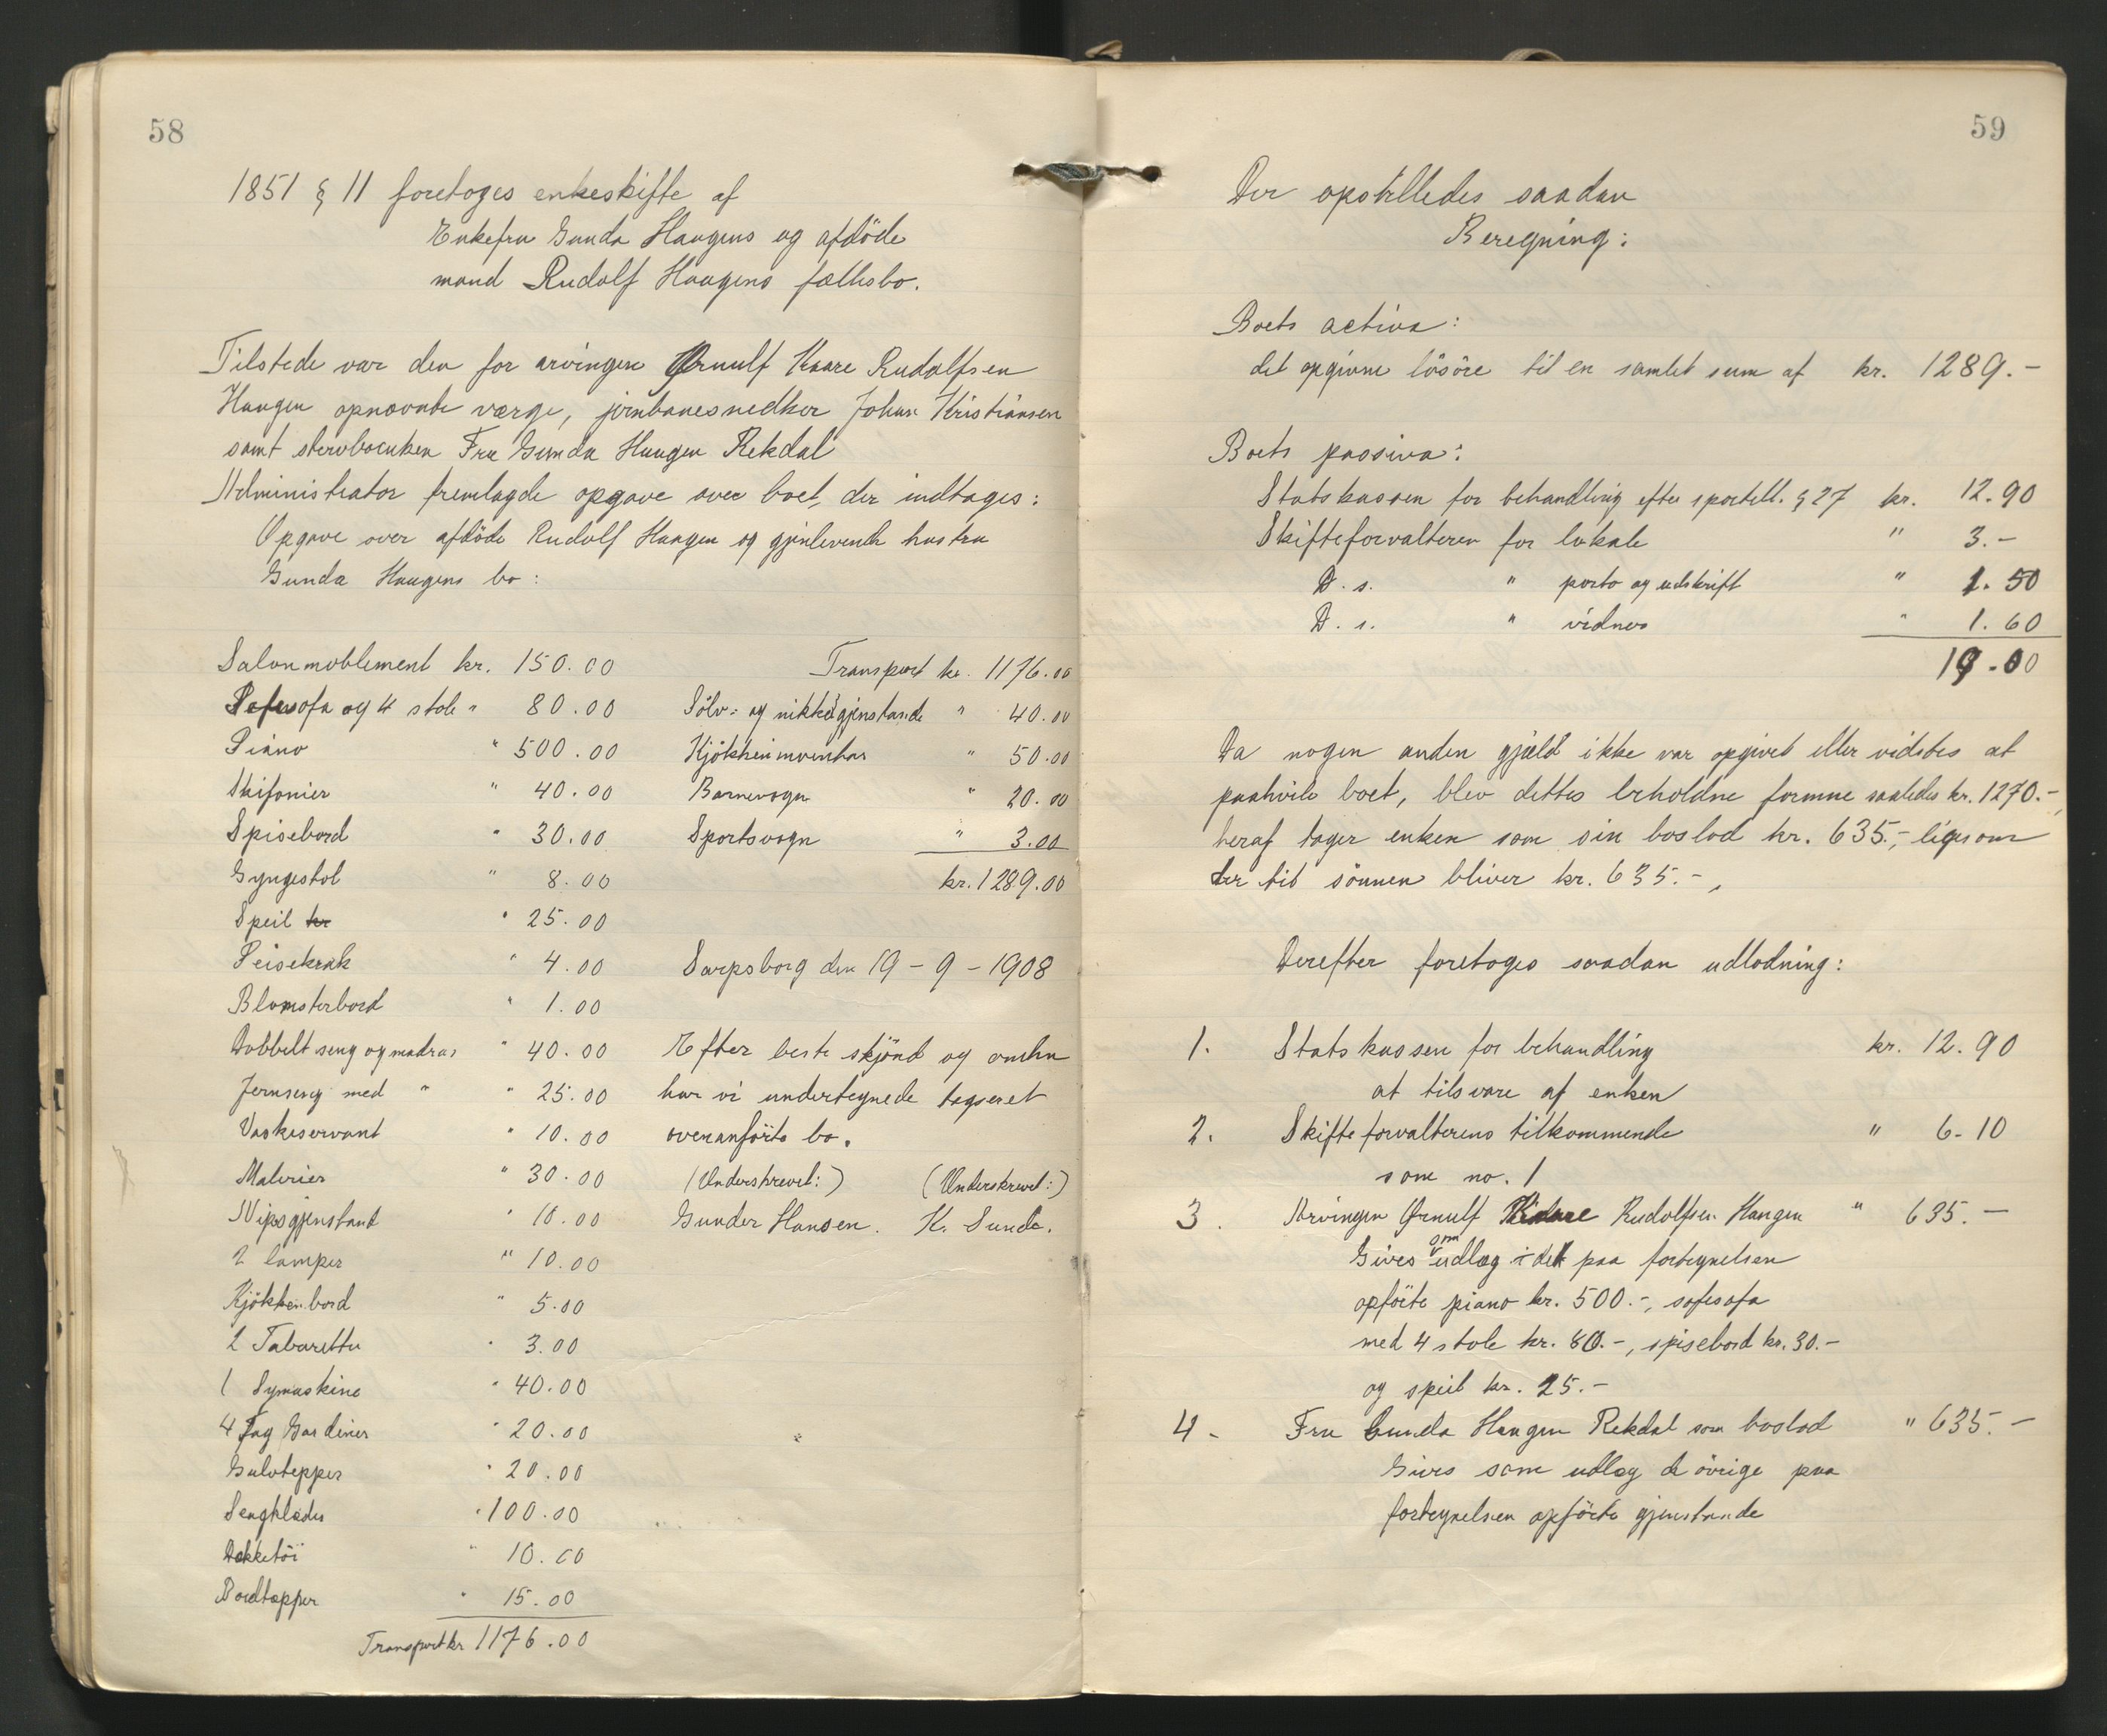 58
1851 § 11 foretoges enkeskifte af
Enkefru Gunda Haugens og afdöde
mand Rudolf Haugens fællesbo.
Tilstede var den for arvingen Ørnulf Kaare Rudolfsen
Haugen opnævnte værge, jernbanesnedker Johan Kristiansen
samt stervboenken Fru Gunda Haugen Rekdal
Administrator fremlagde opgave over boet, der indtages:
Opgave over afdöde Rudolf Haugen og gjenlevende hustru
Gunda Haugens bo:
Salonmoblement kr. 150.00
sofa og 4 stole " 80.00
Piano " 500.00
Skifonier " 40.00
Spisebord " 30.00
Gyngestol " 8.00
Speil kr " 25.00
Peisekrak " 4.00
Blomsterbord " 1.00
Dobbelt seng og madras " 40.00
Jernseng med " " 25.00
Vaskeservant " 10.00
Malerier " 30.00
Nipsgjenstand " 10.00
2 lamper " 10.00
Kjökkenbord " 5.00
2 Tabaretter " 3.00
1 Symaskine " 40.00
4 Fag Gardiner " 20.00
Gulvtepper " 20.00
Sengklæder " 100.00
Dekketöi " 10.00
Bordtæpper " 15.00
Transport kr 1176.00
Transport kr. 1176.00
Sölv= og nikkelgjenstande " 40.00
Kjökkeninventar " 50.00
Barnevogn " 20.00
Sportsvogn " 3.00
kr. 1289.00
Sarpsborg den 19 - 9 - 1908
Efter beste skjönd og omhu
har vi undertegnede taxeret
ovenanförte bo.
(Underskrevet:) (Underskrevet:)
Gunder Hansen. K. Sunde.
59
Der opstilledes saadan
Beregning:
Boets activa:
det opgivne lösöre til en samlet sum af kr. 1289.-
Boets passiva:
Statskassen for behandling efter sportell. § 27 kr. 12.90
Skifteforvalteren for lokale " 3.-
D. s. " porto og udskrift " 1.50
D. s. " vidner " 1.60
19.00
Da nogen anden gjæld ikke var opgivet eller vidstes at
paahvile boet, blev dettes beholdne formue saaledes kr. 1270.-,
heraf tager enken som sin boslod kr. 635.-, ligesom
der til sönnen bliver kr. 635.-,
Derefter foretoges saadan udlodning:
1. Statskassen for behandling kr. 12.90
at tilsvare af enken
2. Skifteforvalterens tilkommende " 6.10
som no. 1
3. Arvingen Ørnulf Kaare Rudolfsen Haugen " 635.-
Gives som udlæg i det paa fortegnelsen
opförte piano kr. 500.-, sofesofa
med 4 stole kr. 80.-, spisebord kr. 30.-
og speil kr. 25.-
4. Fru Gunda Haugen Rekdal som boslod " 635.-
Gives som udlæg de övrige paa
fortegnelsen opförte gjenstande